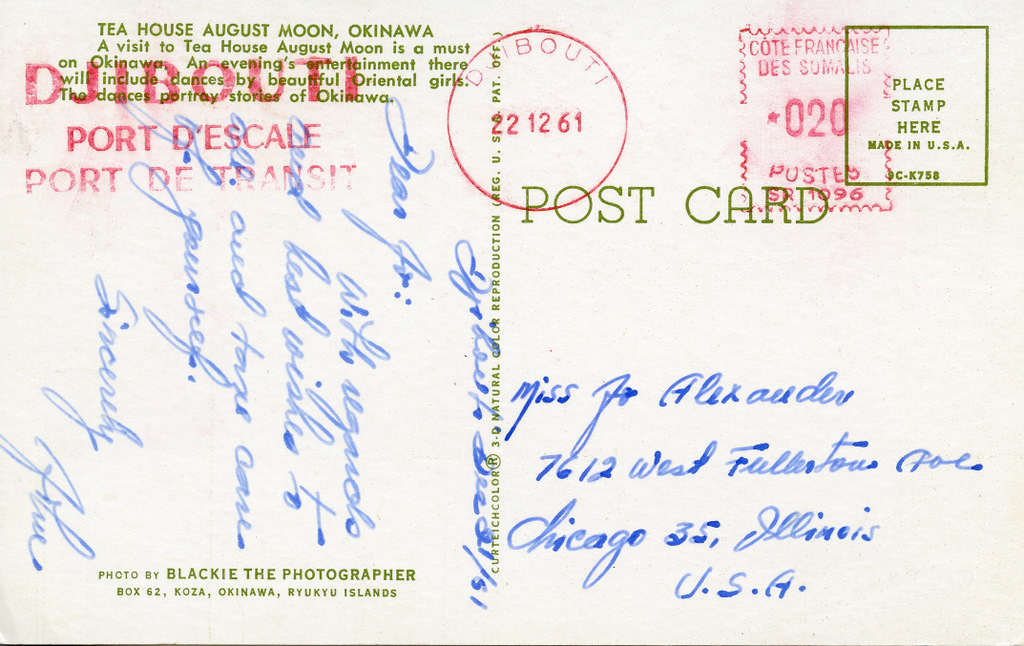 TEA HOUSE AUGUST MOON, OKINAWA
A visit to Tea House August Moon is a must
on Okinawa. An evening's entertainment there
will include dances by beautiful Oriental girls.
The dances portray stories of Okinawa.
DJIBOUTI
PORT D'ESCALE
PORT DE TRANSIT
DJIBOUTI
22 12 61
CÔTE FRANÇAISE
DES SOMALIS
*020
POSTES
SR 1096
PLACE
STAMP
HERE
MADE IN U.S.A.
9C-K758
POST CARD
CURTEICHCOLOR® 3-D NATURAL COLOR REPRODUCTION (REG. U. S. PAT. OFF.)
Djibouti, Dec 21/61
Dear Jo:
With regards
and best wishes to
all. and take care
of yourself.
Sincerely
John
Miss Jo Alexander
7612 West Fullerton Ave.
Chicago 35, Illinois
U.S.A.
PHOTO BY BLACKIE THE PHOTOGRAPHER
BOX 62, KOZA, OKINAWA, RYUKYU ISLANDS